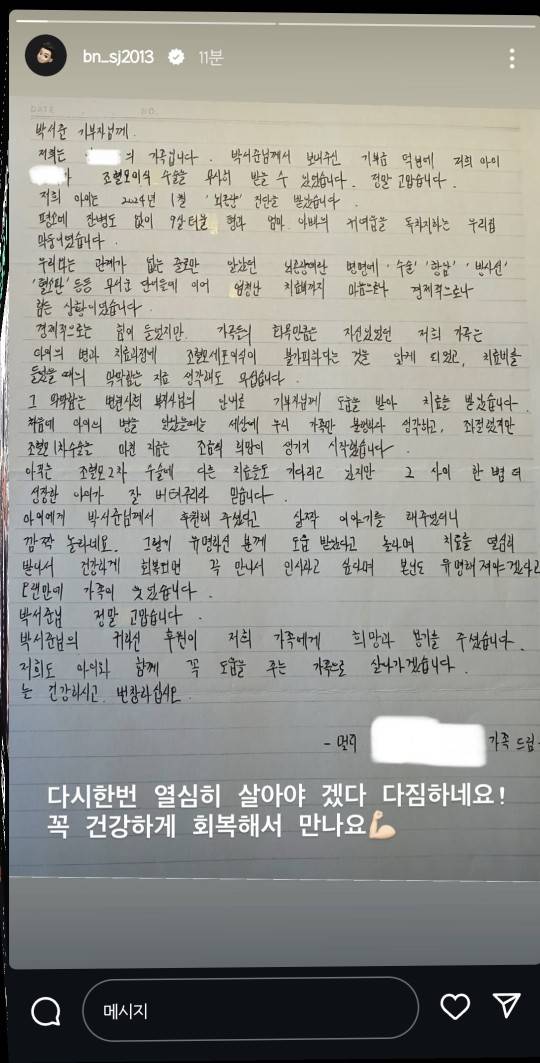 bn_sj2013 11분
DATE NO.
박서준 기부자님께.
저희는 의 가족입니다. 박서준님께서 보내주신 기부금 덕분에 저희 아이
조혈모이식 수술을 무사히 받을 수 있었습니다. 정말 고맙습니다.
저희 아이는 2024년 1월 '뇌종양' 진단을 받았습니다.
평소에 잔병도 없이 9살 터울 형과 엄마 아빠의 귀여움을 독차지하는 우리집
막둥이였습니다.
우리와는 관계가 없는 줄로만 알았던 뇌종양이란 병명에 '수술' '항암' '방사선'
'혈소판' 등등 무서운 단어들에 이어 엄청난 치료비까지 마음으로나 경제적으로나
힘든 상황이었습니다.
경제적으로는 힘이 들었지만. 가족들의 화목만큼은 자신있었던 저희 가족은
아이의 병과 치료과정에 조혈모세포이식이 불가피하다는 것을 알게 되었고, 치료비를
들었을 때의 막막함은 지금 생각해도 무섭습니다.
그 막막함은 병원사회 복지사님의 안내로 기부자님께 도움을 받아 치료를 받았습니다.
처음에 아이의 병을 알았을때는 세상에 우리 가족만 불행하다 생각하고, 좌절했지만
조혈 1차수술을 마친 지금은 조금씩 희망이 생기기 시작했습니다.
아직은 조혈모 2차 수술에 다른 치료들도 기다리고 있지만 그 사이 한 뼘 더
성장한 아이가 잘 버텨주리라 믿습니다.
아이에게 박서준님께서 후원해 주셨다고 살짝 이야기를 해주었더니
깜짝 놀라네요. 그렇게 유명하신 분께 도움 받았다고 놀라며 치료를 열심히
받아서 건강하게 회복되면 꼭 만나서 인사하고 싶다며 본인도 유명해져야겠다고
오랜만에 가족이 웃었습니다.
박서준님 정말 고맙습니다.
박서준님의 귀하신 후원이 저희 가족에게 희망과 용기를 주셨습니다.
저희도 아이와 함께 꼭 도움을 주는 가족으로 살아가겠습니다.
늘 건강하시고 번창하십시오.
- 멀리 가족 드림 -
다시한번 열심히 살아야 겠다 다짐하네요!
꼭 건강하게 회복해서 만나요💪🏻
메시지